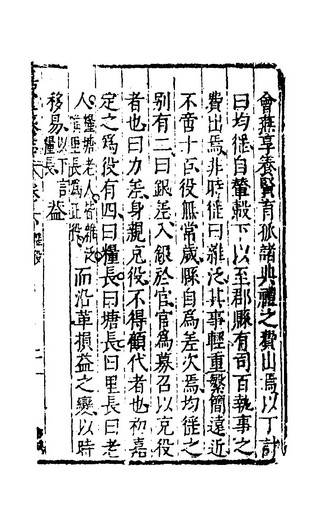 會燕享養賢育孤諸典禮之費出焉以丁計
曰均徭自輦轂下以至郡縣有司百執事之
費出焉非時徭曰雜泛其事輕重繁簡遠近
不啻十百役無常歲縣自爲差次焉均徭之
別有二曰銀差入銀於官官爲募召以充役
者也曰力差身親充役不得顧代者也初嘉
定之爲役有四曰糧長曰塘長曰里長曰老
人糧塘老人皆雜泛惟里長爲正役而沿革損益之變以時
移易以下言益糧長